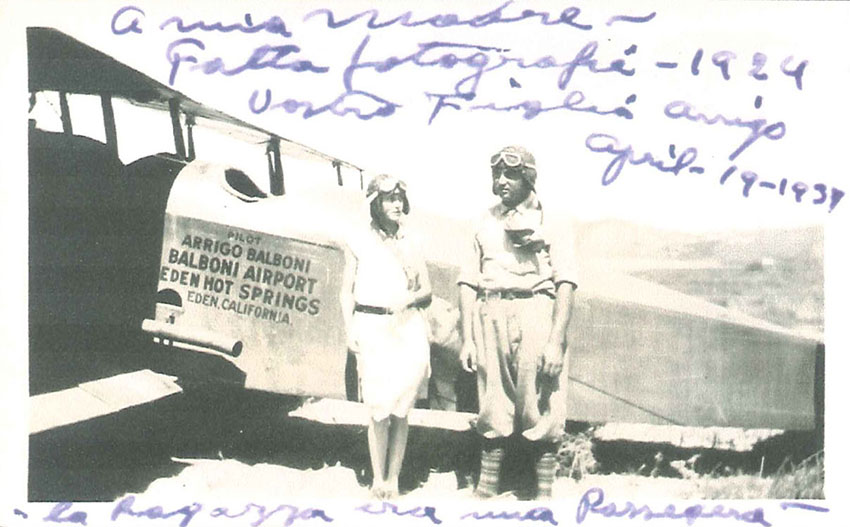 A mia Madre ~
Fatta fotografié - 1924
Vostro Figlió Arrigo
April - 19 - 1937
PILOT
ARRIGO BALBONI
BALBONI AIRPORT
EDEN HOT SPRINGS
EDEN, CALIFORNIA
- la Ragazza era una Passegera -